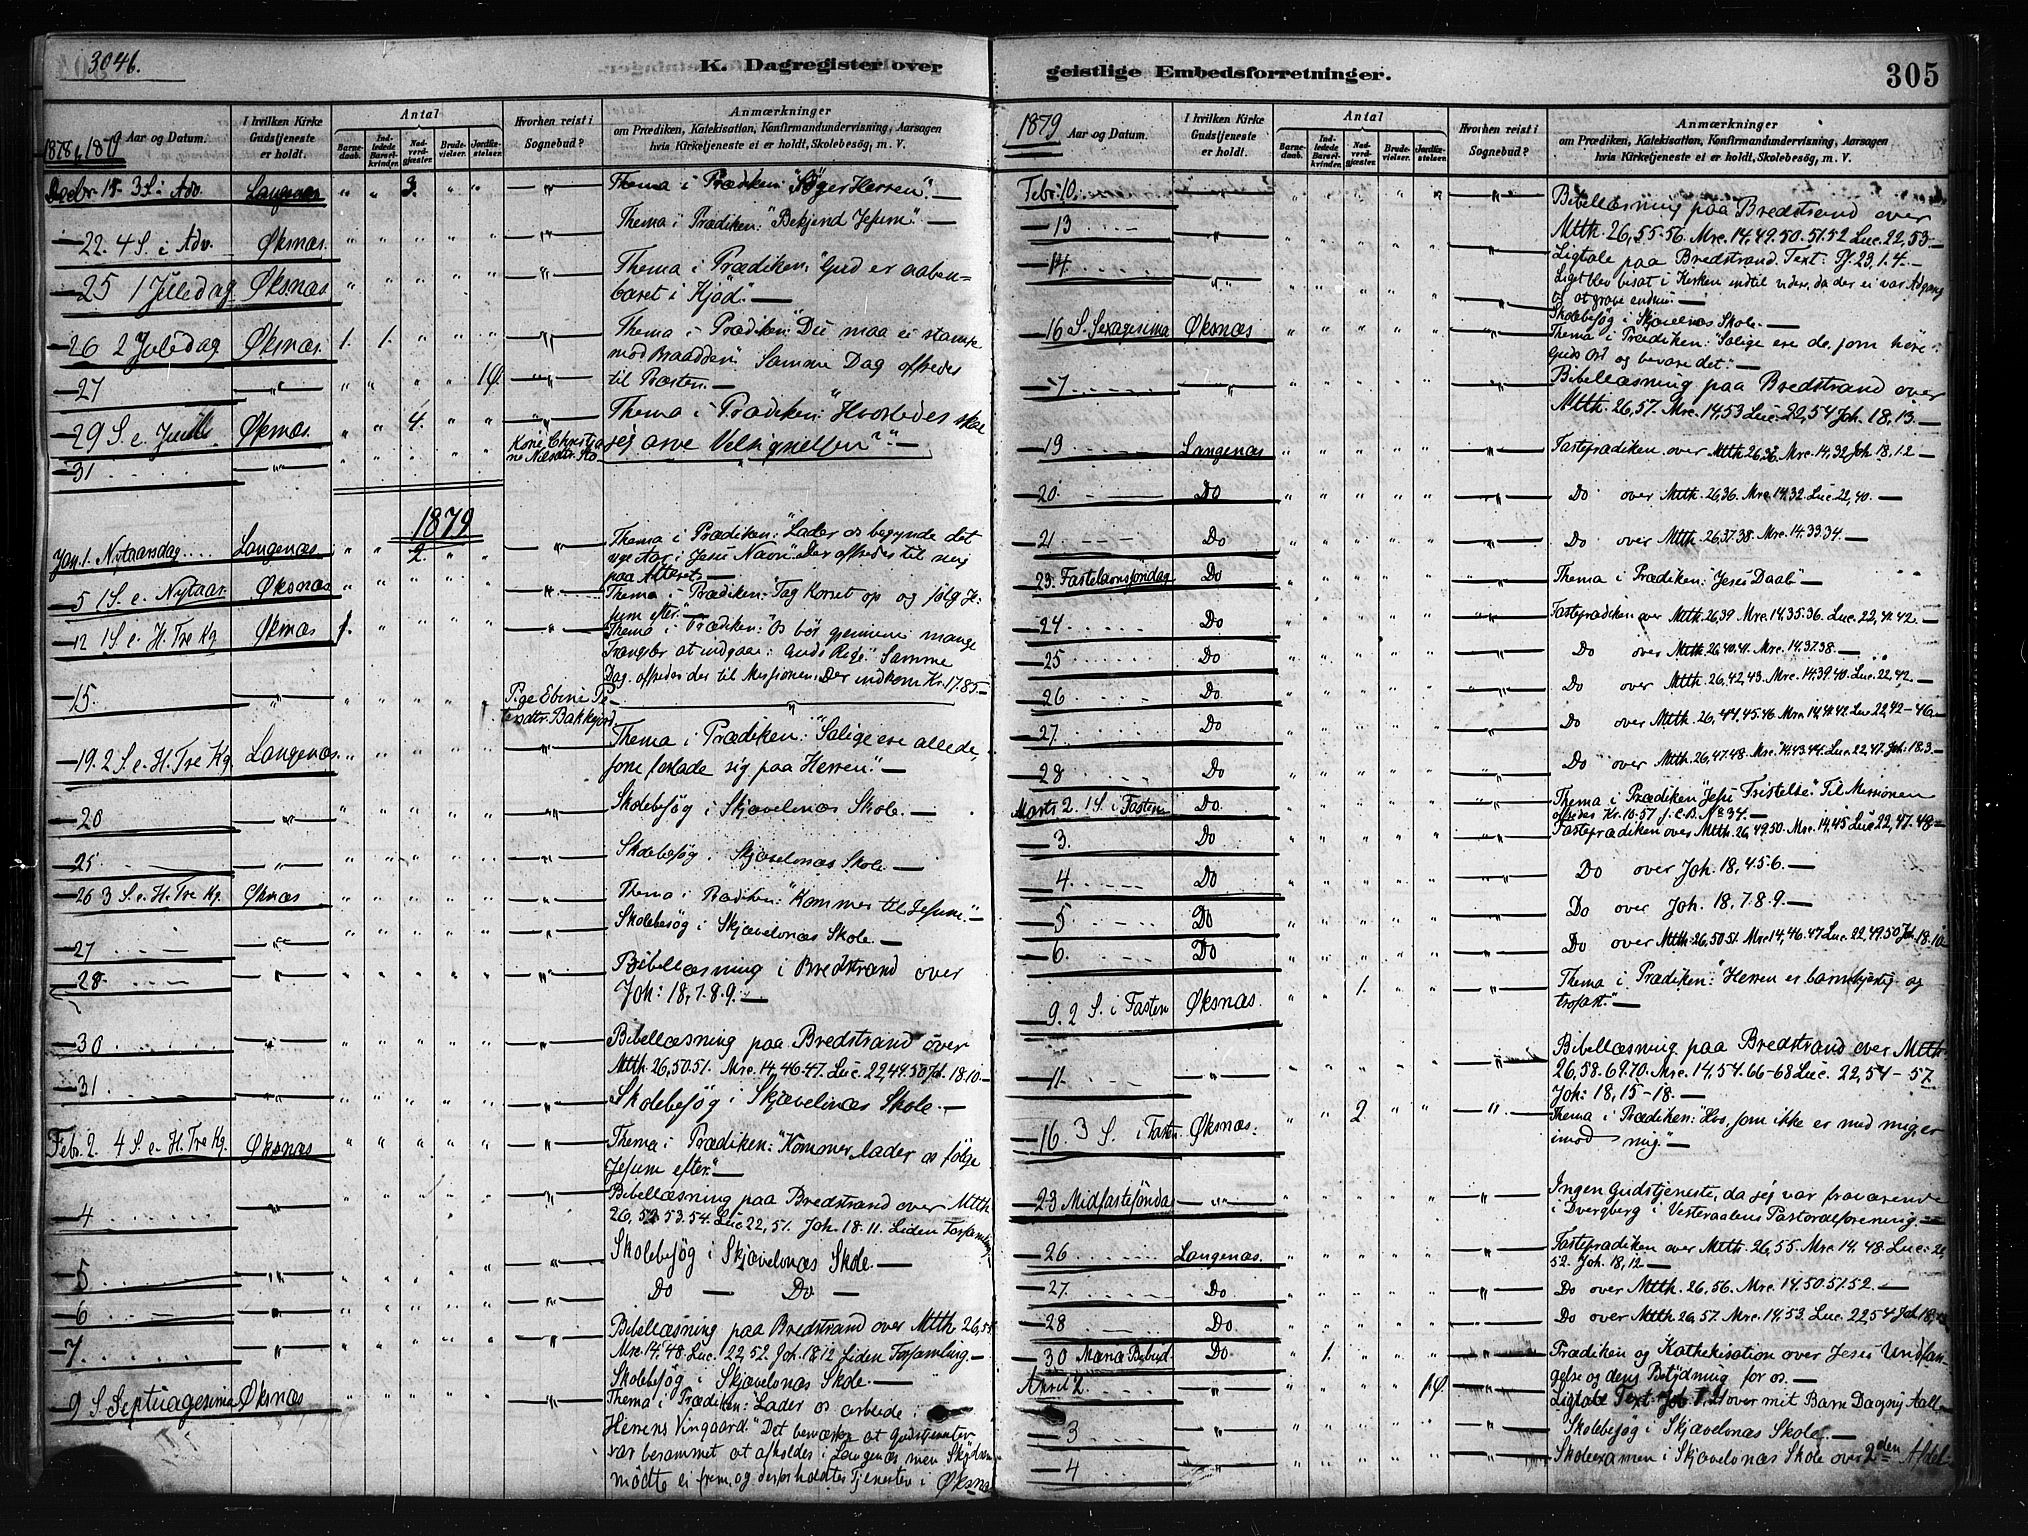 3046.
K. Dagregister over
1878 & 1879 Aar og Datum.
I hvilken Kirke Gudstjeneste er holdt.
Antal
Barnedaab.
Indledede Barselkvinder.
Nadverdgjæster.
Brudevielser.
Jordfæstelser.
Hvorhen reist i Sognebud?
Anmærkninger
om Prædiken, Katekisation, Konfirmandundervisning, Aarsagen
hvis Kirketjeneste ei er holdt, Skolebesøg, m. V.
Decbr. 15. 3 S. i Adv. Langenæs " " 3. " " " Thema i Prædiken: "Søger Herren". —
— 22. 4 S. i Adv. Øksnæs. " " " " " " Thema i Prædiken: "Bekjend Jesum". —
— 25 1 Juledag Øksnæs " " " " " " Thema i Prædiken: "Gud er aaben-
baret i Kjød". —
— 26 2 Juledag Øksnæs. 1. 1. " " " " Thema i Prædiken: "Du maa ei stampe
mod Braadden". Samme Dag ofredes
— 27 " " " " " 1 " til Præsten. —
— 29 S. e. Juul Øksnæs. " " 4. " " " Thema i Prædiken: "Hvorledes skal
— 31 " " " " " " Kone Christia- jeg arve Velsignelsen?" —
1879
Jan. 1. Nytaarsdag.... Langenæs " " 2. " " " Thema i Prædiken: "Lader os begynde det
nye Aar i Jesu Navn". Der ofredes til mig
paa Alteret. —
— 5 1 S. e. Nytaar. Øksnæs " " " " " " Thema i Prædiken: "Tag Korset op og følg Je-
sum efter". —
— 12 1 S. e. H. Tre Kg. Øksnæs 1. " " " " " Thema i Prædiken: "Os bør gjennem mange
Trængsler at indgaa i Guds Rige". Samme
Dag ofredes der til Missionen. Der indkom Kr. 17.85 —
— 15. " " " " " Pige
— 19. 2 S. e. H. Tre Kg. Langenæs. " " " " " " Thema i Prædiken: "Salige ere alle de,
som forlade sig paa Herren". —
— 20 " " " " " " " Skolebesøg i Skjævelnæs Skole. —
— 25 " " " " " " " Skolebesøg i Skjævelnæs Skole —
— 26 3 S. e. H. Tre Kg. Øksnæs " " " " " " Thema i Prædiken: "Kommer til Jesum". —
— 27 " " " " " " " Skolebesøg i Skjævelnæs Skole. —
— 28 " " " " " " " Bibellæsning i Bredstrand over
Joh: 18,7.8.9. —
— 30 " " " " " " " Bibellæsning paa Bredstrand over
Mtth. 26,50.51. Mrc. 14,46.47. Luc. 22,49.50 Joh. 18.10 —
— 31 " " " " " " " Skolebesøg i Skjævelnæs Skole. —
Febr. 2. 4 S. e. H. Tre Kg. Øksnæs " " " " " " Thema i Prædiken: "Kommer, lader os følge
Jesum efter". —
— 4 " " " " " " " Bibellæsning paa Bredstrand over Mtth
26, 52.53.54. Luc. 22,51. Joh. 18.11. Liden Forsamling.
— 5 " " " " " " " Skolebesøg i Skjævelnæs Skole. —
— 6 " " " " " " " Do — Do —
— 7 " " " " " " " Bibellæsning paa Bredstrand over Mtth 26,55
Mrc. 14,48 Luc. 22,52. Joh. 18.12 Liden Forsamling. —
Skolebesøg i Skjævelnæs Skole. —
— 9 S. Septuagesima Øksnæs " " " " " " Thema i Prædiken: "Lader os arbeide i
Herrens Viingaard". Det bemærkes at Gudstjenesten
var berammet at afholdes i Langenæs men Skyds
mødte ei frem, og derfor holdtes Tjenesten i Øksnæs
geistlige Embedsforretninger.
305
1879 Aar og Datum.
I hvilken Kirke Gudstjeneste er holdt.
Antal
Barnedaab.
Indledede Barselkvinder.
Nadverdgjæster.
Brudevielser.
Jordfæstelser.
Hvorhen reist i Sognebud?
Anmærkninger
om Prædiken, Katekisation, Konfirmandundervisning, Aarsagen
hvis Kirketjeneste ei er holdt, Skolebesøg, m. V.
Febr. 10. " " " " " " " Bibellæsning paa Bredstrand over
Mtth. 26,55-56. Mrc. 14,49.50.51.52 Luc. 22,53 —
— 13 " " " " " " " Ligtale paa Bredstrand. Text: Ps. 23,1.4. —
Liget blev bisat i Kirken indtil videre, da der ei var Adgang
til at grave endnu. —
— 14. " " " " " " " Skolebesøg i Skjævelnæs Skole. —
— 16 S. Sexagesima Øksnæs " " " " " " Thema i Prædiken: "Salige ere de, som høre
Guds Ord og bevare det". —
— 17 " " " " " " " Bibellæsning paa Bredstrand over
Mtth. 26,57. Mrc. 14,53 Luc. 22,54 Joh. 18,13. —
— 19 Langenæs " " " " " " Fasteprædiken over Mtth 26,36. Mrc. 14,32 Joh 18,1.2 —
— 20. Do " " " " " " Do over Mtth. 26,36. Mrc. 14,32. Luc. 22,40. —
— 21 Do " " " " " " Do over Mtth. 26,37.38. Mrc. 14.33.34. —
— 23. Fastelavnssøndag Do " " " " " " Thema i Prædiken: "Jesu Daab" —
— 24 Do " " " " " " Fasteprædiken over Mtth. 26,39 Mrc. 14,35.36. Luc. 22,41.42. —
— 25 Do " " " " " " Do over Mtth. 26,40.41. Mrc. 14.37.38. —
— 26 Do " " " " " " Do over Mtth. 26,42,43. Mrc. 14,39.40. Luc. 22,42. —
— 27. Do " " " " " " Do over Mtth. 26,44.45.46 Mrc. 14,41.42. Luc 22,42-46 —
— 28 Do " " " " " " Do over Mtth. 26,47.48. Mrc. 14.43.44. Luc. 22.47. Joh. 18.3 —
Marts 2. 1 S. i Fasten Do. " " " " " " Thema i Prædiken "Jesu Fristelse". Til Missionen
ofredes Kr. 10.57 J. C. B. No 34. —
— 3. Do " " " " " " Fasteprædiken over Mtth. 26,49.50. Mrc. 14,45 Luc 22,47.48 —
— 4. Do " " " " " " Do over Joh. 18,4.5.6. —
— 5 Do " " " " " " Do over Joh. 18,7.8.9. —
— 6. Do " " " " " " Do over Mtth. 26,50.51. Mrc 14,46.47. Luc. 22,49.50 Joh. 18.10
— 9. 2 S. i Fasten Øksnæs. " " 1. " " " Thema i Prædiken: "Herren er barmhjertig og
trofast". —
— 11. " " " " " " " Bibellæsning paa Bredstrand over Mtth
26,58.69.70. Mrc. 14,54.66-68 Luc. 22,54-57
Joh: 18,15-18. —
— 16. 3 S. i Fasten Øksnæs. " " 2 " " " Thema i Prædiken: "Hvo, som ikke er med mig, er
imod mig". —
— 23 Midfastesøndag " " " " " " " Ingen Gudstjeneste, da jeg var fraværende
i Dverberg i Vesteraalens Pastoralforening —
— 26 Langenæs. " " " " " " Fasteprædiken over Mtth. 26,55 Mrc. 14,48. Luc: 22,
52. Joh. 18,12 —
— 27. Do " " " " " " Do over Mtth. 26,56. Mrc. 14,50.51.52. —
— 28 Do. " " " " " " Do over Mtth 26,57. Mrc. 14,53. Luc. 22 54 Joh 18,13
— 30 Mariæ Bebud. Do " 1. " " " " Prædiken og Kathekisation over Jesu Undfan-
gelse og dens Betydning for os. —
April 2. " " " " " 1 " Ligtale Text: over mit Barn Dagny
— 3 " " " " " " " Skolebesøg i Skjævelnæs Skole. —
— 4 " " " " " " " Skoleexamen i Skjævelnæs Skole over 2den Afdel.